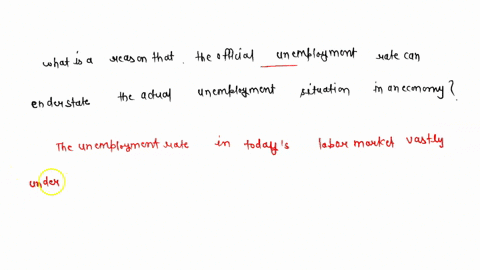 what is a reason that. the official unemployment rate can
enderstate the actual unemployment situation in an economy?
The unemployment rate in today's labor market vastly
under